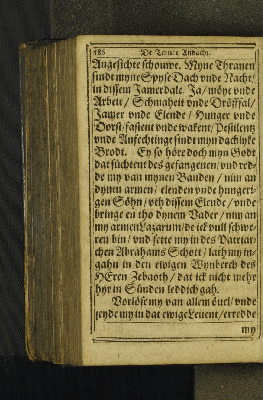 586 De Teinde Andacht.
Angesichte schouwe. Myne Thranen
sindt myne Spyse Dach vnde Nacht/
in dissem Jamerdale. Ja/ möye vnde
Arbeit/ Schmaheit vnde Dröffsal/
Jamer vnde Elende/ Hunger vnde
Dorst/ fastent vnde wakent/ Pestilentz
vnde Anfechtinge sindt myn dachlyke
Brodt. Ey so höre doch myn Godt
dat süchtent des gefangenen/ vnd red-
de my van mynen Banden/ nim an
dynen armen/ elenden vnde hungeri-
gen Söhn/ vth dissem Elende/ vnde
bringe en tho dynem Vader/ nim an
my armen Lazarum/ de ick vull schwe-
ren bin/ vnd sette my in des Patriar-
chen Abrahams Schott/ lath my in-
gahn in den ewigen Wynberch des
HEren Zebaoth/ dat ick nicht mehr
hyr in Sünden leddich gah.
Vorlöse my van allem övel/ vnde
leyde my in dat ewige Levent/ erredde
my